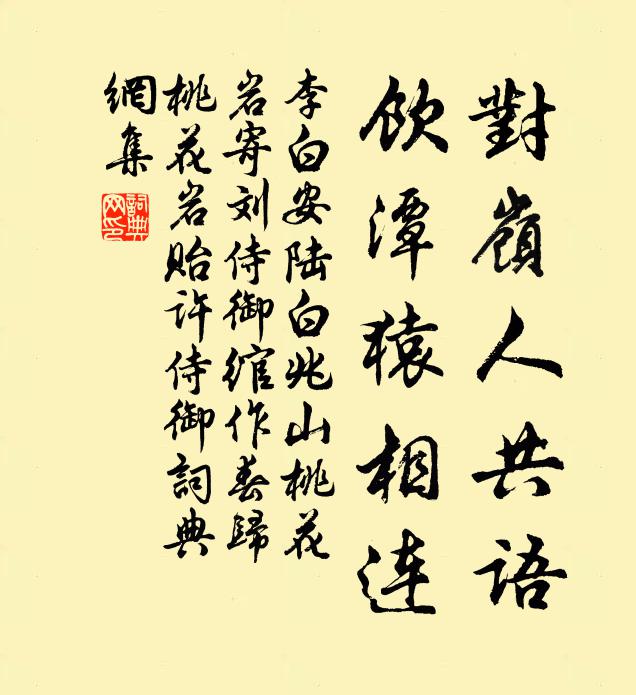 對嶺人共語
飲潭猿相連
李白安陆白兆山桃花
岩寄刘侍御綰作春歸
桃花岩貽许侍御詞典
網集
詞典
网印